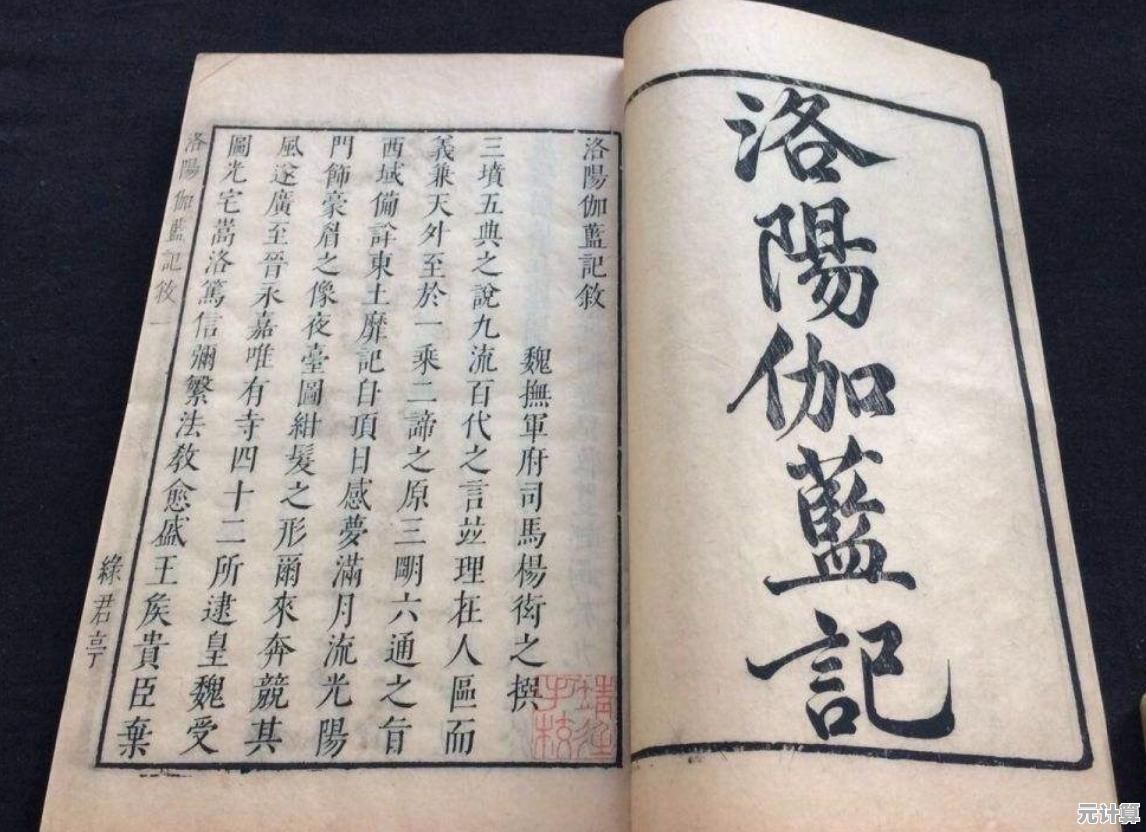 洛陽伽藍記
洛陽伽藍記敘
魏撫軍府司馬楊衒之撰
三墳五典之說九流百代之言竝理在人區而
義兼天外至於一乘二諦之原三朙六通之旨
西域備詳東土靡記自項日感夢滿月流光陽
門飾豪眉之像夜臺圖紺髮之形爾來奔競其
風遂廣至晉永嘉唯有寺四十二所逮皇魏受
圖光宅嵩洛篤信彌繁法教愈盛王侯貴臣棄
洛陽伽藍記敘 一
綠君亭
元计算